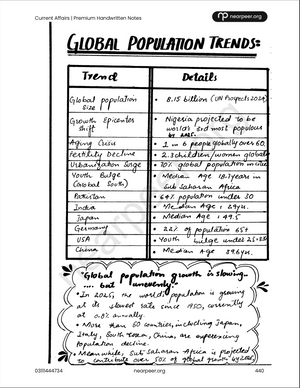 Current Affairs | Premium Handwritten Notes
nearpeer.org
GLOBAL POPULATION TRENDS:
Trend Details
Global population size • 8.15 billion (UN Projects 2024)
Growth Epicenter shift • Nigeria projected to be world's 3rd most populous by
Aging Crisis • 1 in 6 people globally over 60
Fertility Decline • 2.  children/women globally
Urbanization Surge • 70% global population in cities
Youth Bulge (Global South) • Median Age 18.7 years in Sub Saharan Africa
Pakistan • 64% population under 30
India • Median Age : 29 yrs.
Japan • Median Age : 49.5
Germany • 22% of population 65+
USA • Youth bulge under 25
China • Median Age 39.6 yrs.
"Global population growth is slowing.
.... but unevenly."
• In 2025, the world population is growing
at its slowest rate since 1950, currently
at 0.8% annually.
• More than 60 countries, including Japan,
Italy, South Korea, China, are experiencing
population decline.
• Meanwhile, Sub Saharan Africa is projected
to contribute over 50% of global growth by
0311444734
440